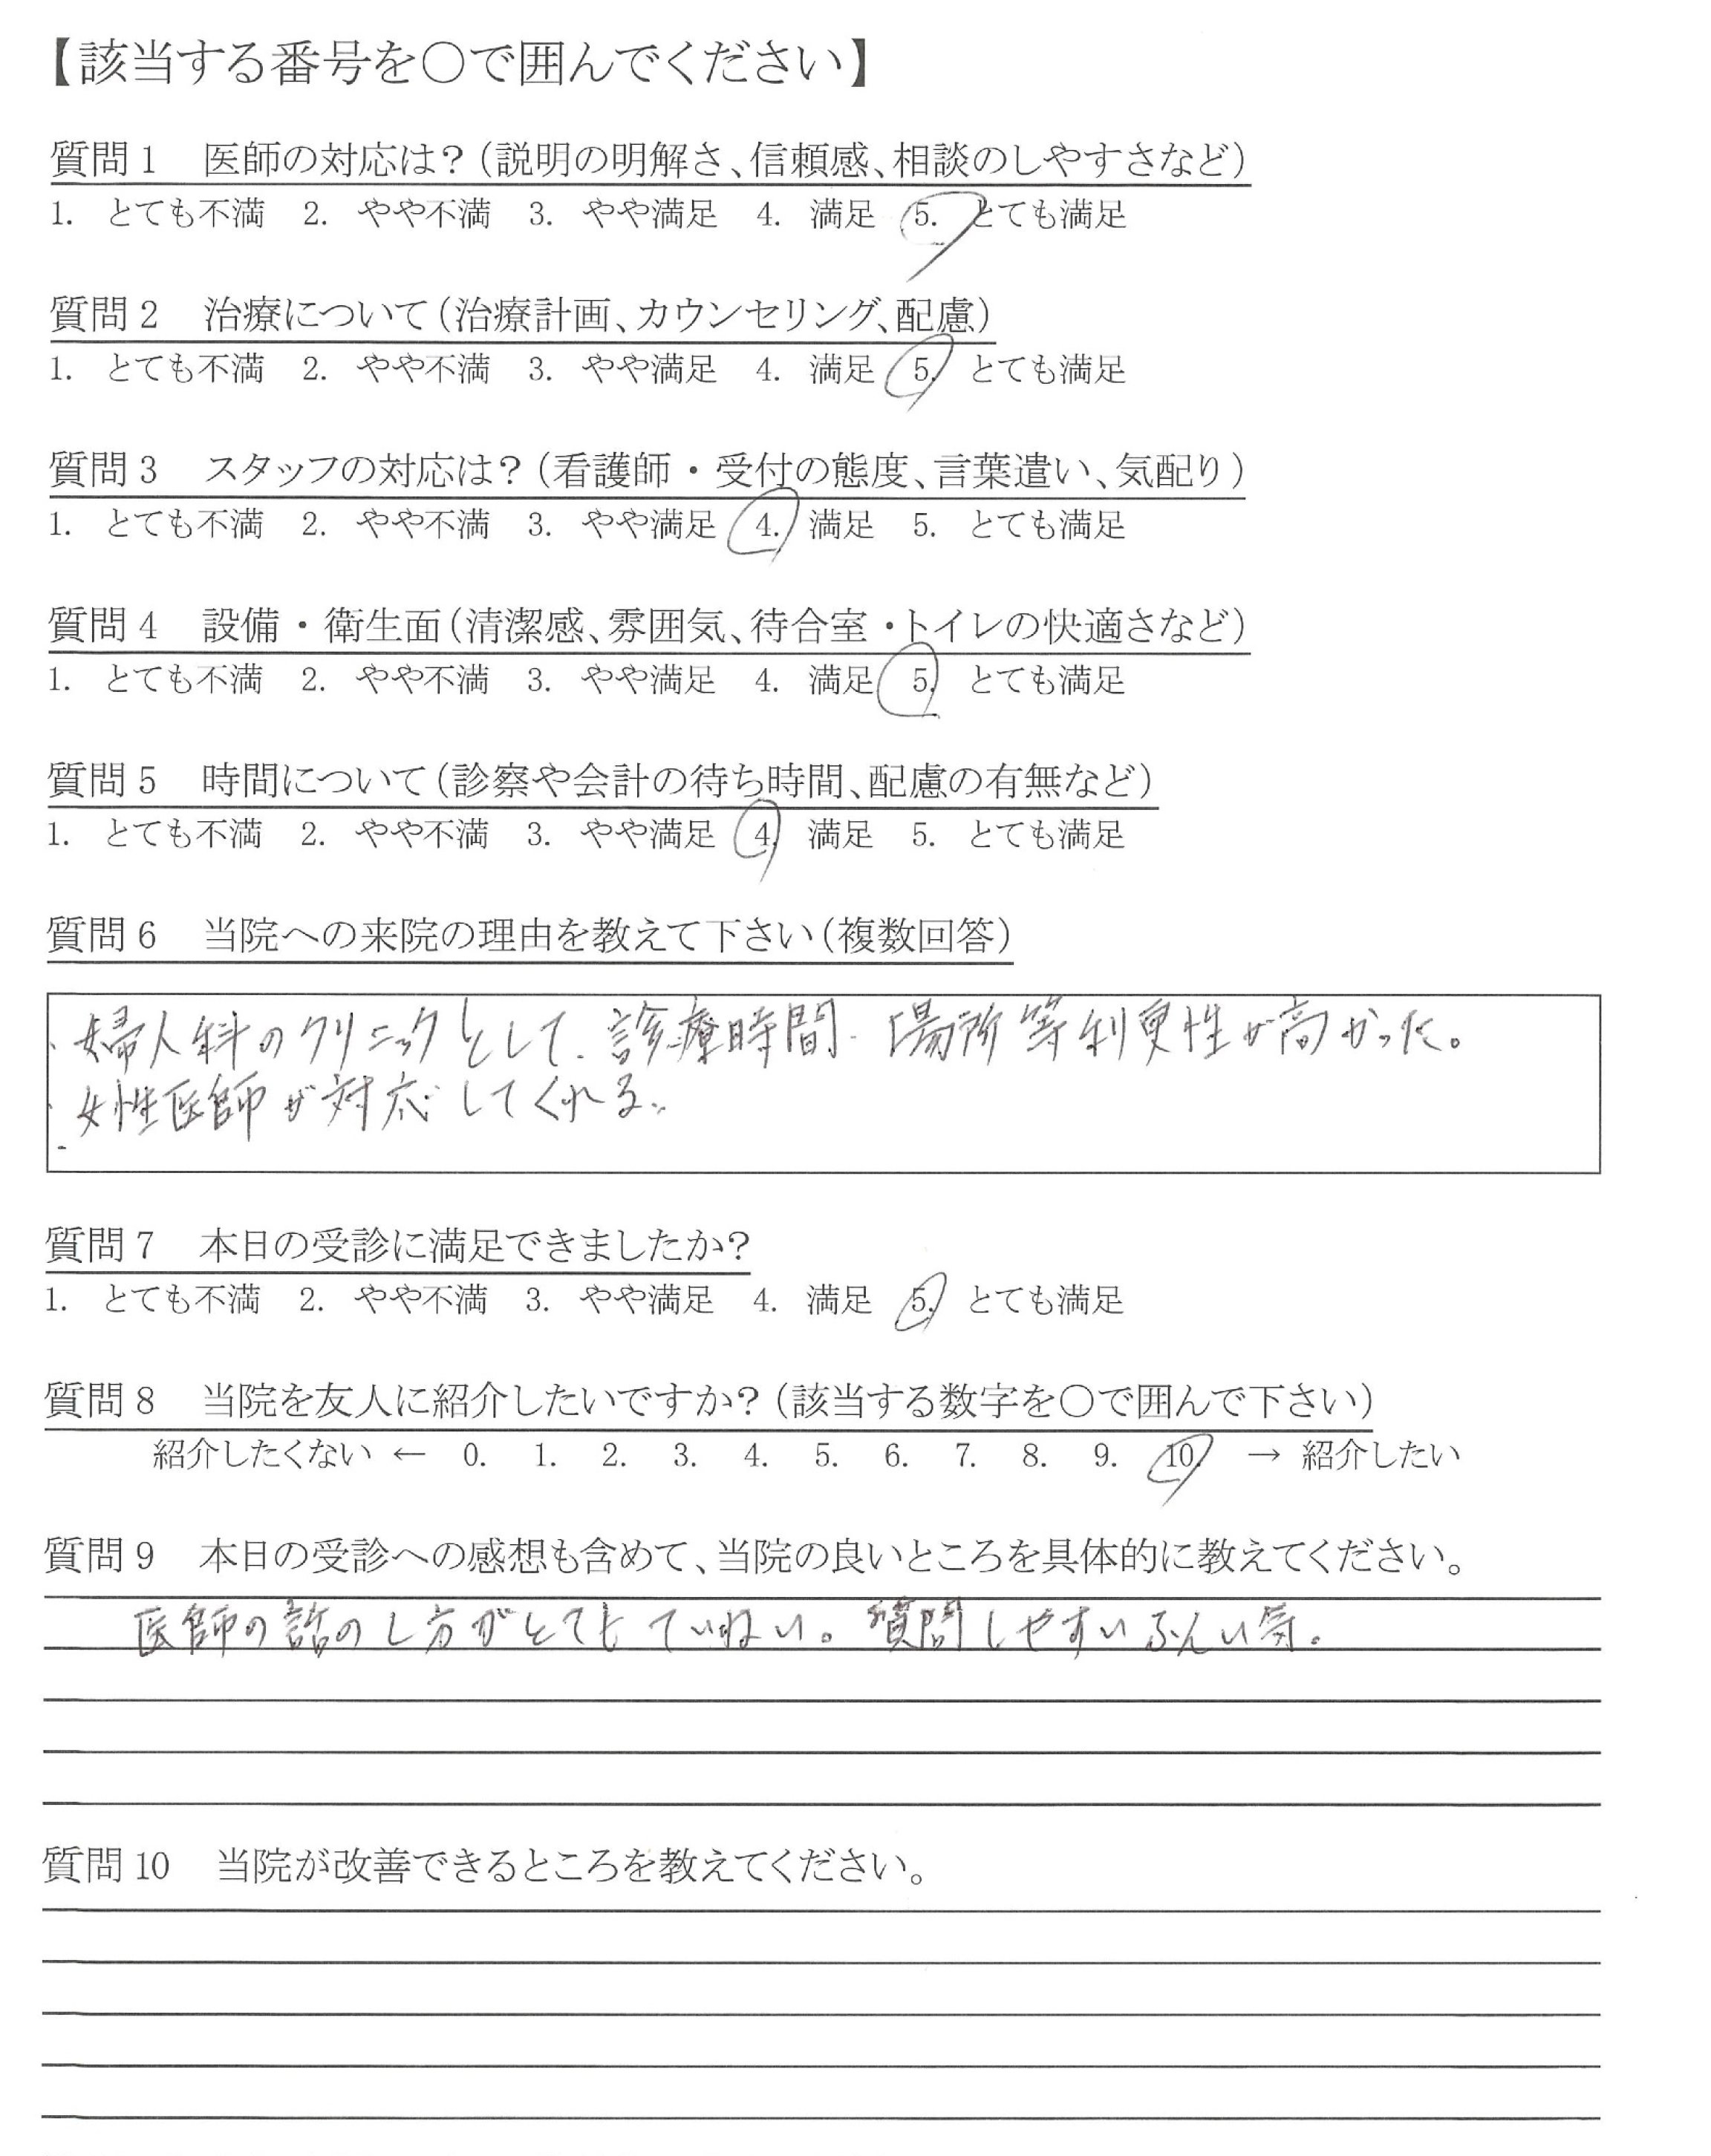 【該当する番号を○で囲んでください】
質問1　医師の対応は?(説明の明解さ、信頼感、相談のしやすさなど)
1. とても不満　2. やや不満　3. やや満足　4. 満足　5. とても満足
質問2　治療について(治療計画、カウンセリング、配慮)
1. とても不満　2. やや不満　3. やや満足　4. 満足　5. とても満足
質問3　スタッフの対応は?(看護師・受付の態度、言葉遣い、気配り)
1. とても不満　2. やや不満　3. やや満足　4. 満足　5. とても満足
質問4　設備・衛生面(清潔感、雰囲気、待合室・トイレの快適さなど)
1. とても不満　2. やや不満　3. やや満足　4. 満足　5. とても満足
質問5　時間について(診察や会計の待ち時間、配慮の有無など)
1. とても不満　2. やや不満　3. やや満足　4. 満足　5. とても満足
質問6　当院への来院の理由を教えて下さい(複数回答)
・婦人科のクリニックとして、診療時間・場所等利便性が高かった。
・女性医師が対応してくれる。
質問7　本日の受診に満足できましたか?
1. とても不満　2. やや不満　3. やや満足　4. 満足　5. とても満足
質問8　当院を友人に紹介したいですか?(該当する数字を○で囲んで下さい)
紹介したくない ← 0. 1. 2. 3. 4. 5. 6. 7. 8. 9. 10. → 紹介したい
質問9　本日の受診への感想も含めて、当院の良いところを具体的に教えてください。
医師の話のし方がとてもていねい。質問しやすいふんい気。
質問10　当院が改善できるところを教えてください。